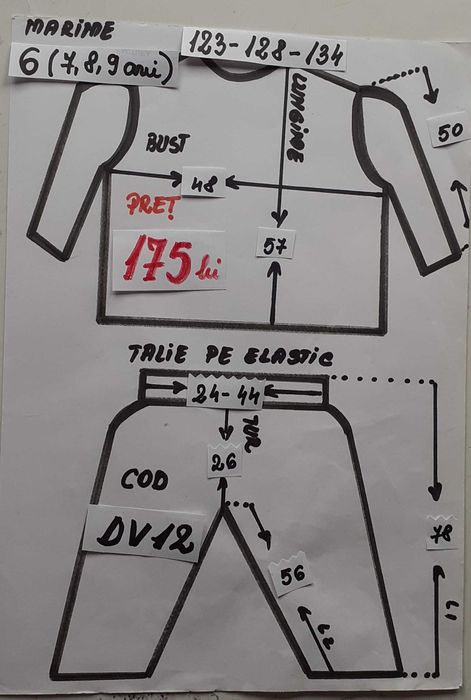 MARIME
123-128-134
6 (7,8,9 ani)
LUNGIME
50
BUST
48
PREȚ
175 lei
57
TALIE PE ELASTIC
24-44
TUR
26
COD
DV12
78
56
L2
L1